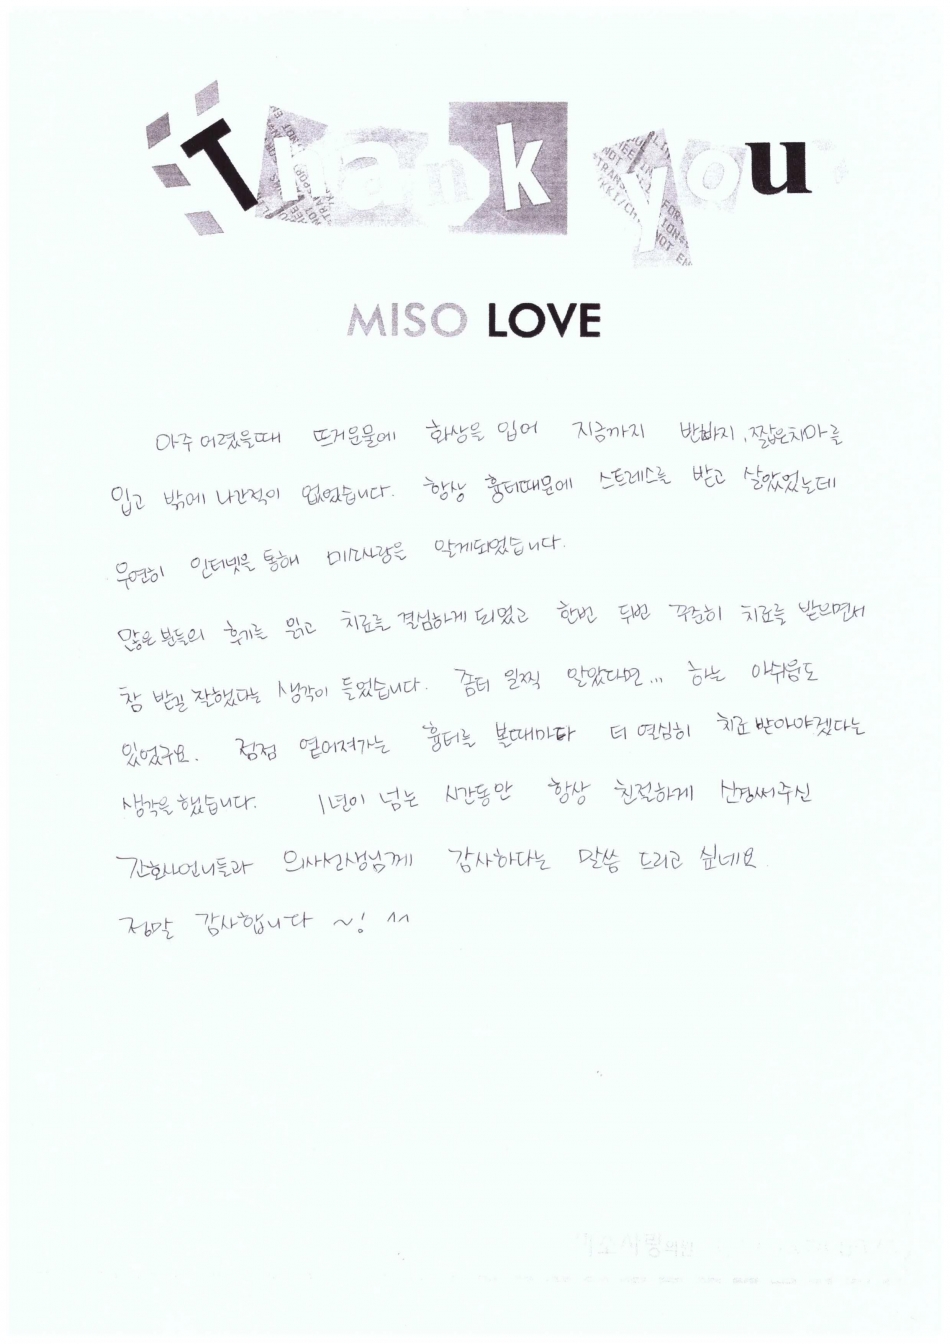 Thank you
MISO LOVE
아주 어렸을때 뜨거운물에 화상을 입어 지금까지 반바지, 짧은치마를
입고 밖에 나간적이 없었습니다. 항상 흉터때문에 스트레스를 받고 살았었는데
우연히 인터넷을 통해 미소사랑을 알게되었습니다.
많은 분들의 후기를 읽고 치료를 결심하게 되었고 한번 두번 꾸준히 치료를 받으면서
참 받길 잘했다는 생각이 들었습니다. 좀더 일찍 알았다면... 하는 아쉬움도
있었구요. 점점 옅어져가는 흉터를 볼때마다 더 열심히 치료 받아야겠다는
생각을 했습니다. 1년이 넘는 시간동안 항상 친절하게 신경써주신
간호사언니들과 의사선생님께 감사하다는 말씀 드리고 싶네요.
정말 감사합니다 ~! ^^